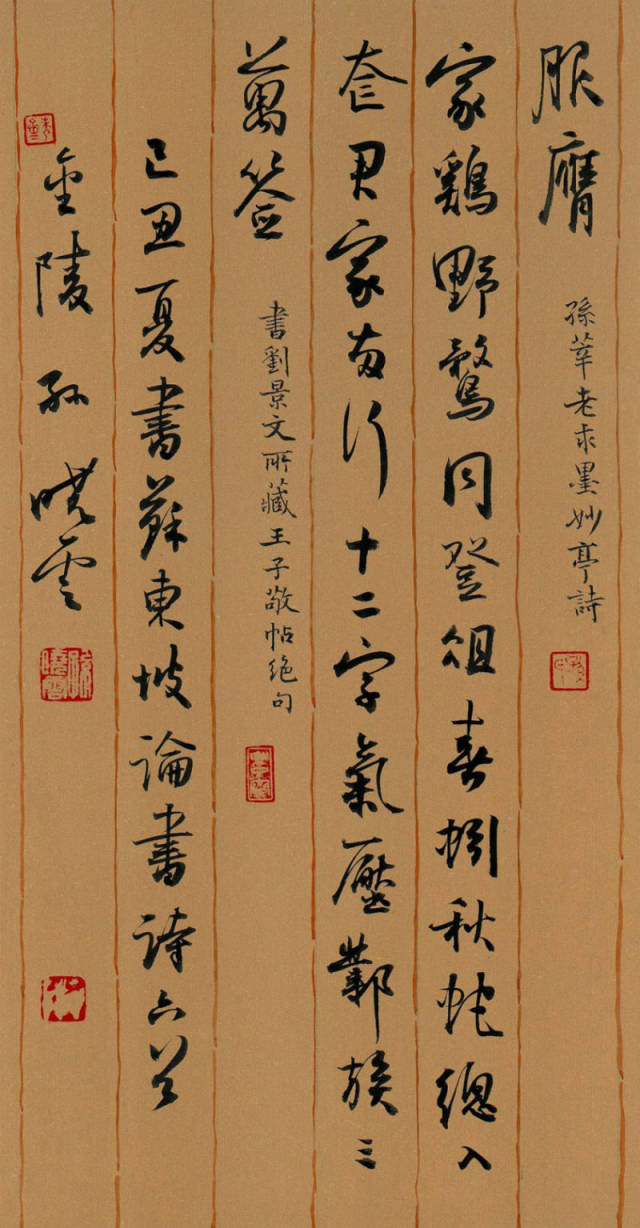 服膺
孫莘老求墨妙亭詩
家鷄野鶩同登俎春蚓秋蛇總入
奁君家兩行十二字氣壓鄴侯三
萬签
書劉景文所藏王子敬帖绝句
己丑夏書蘇東坡論書詩六首
金陵孫曉雲